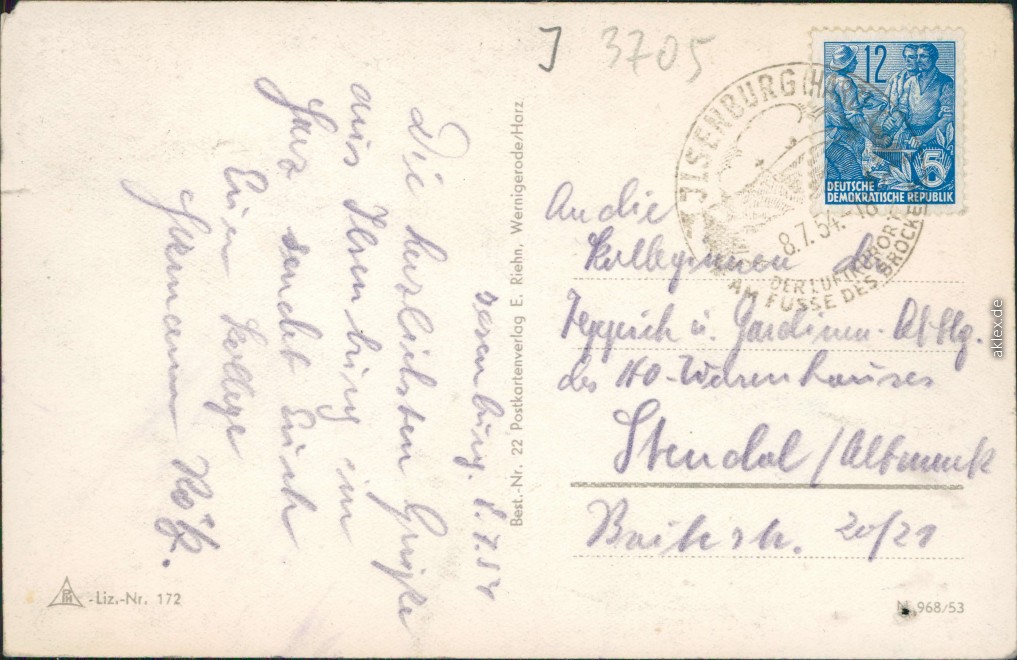 J 3705
Ilsenburg. 8.7.54
Die herzlichsten Grüße
aus Ilsenburg im
Harz sendet Euch
Euer Kollege
Hermann
An die
Kolleginnen d.
Teppich u. Gardinen-Abtlg.
des HO-Warenhauses
Stendal/Altmark
20/21
12
5
DEUTSCHE
DEMOKRATISCHE REPUBLIK
ILSENBURG (HARZ)
8.7.54.-18
DER LUFTKURORT
AM FUSSE DES BROCKEN
Best.-Nr. 22 Postkartenverlag E. Riehn, Wernigerode/Harz
PH -Liz.-Nr. 172
968/53
aklex.de